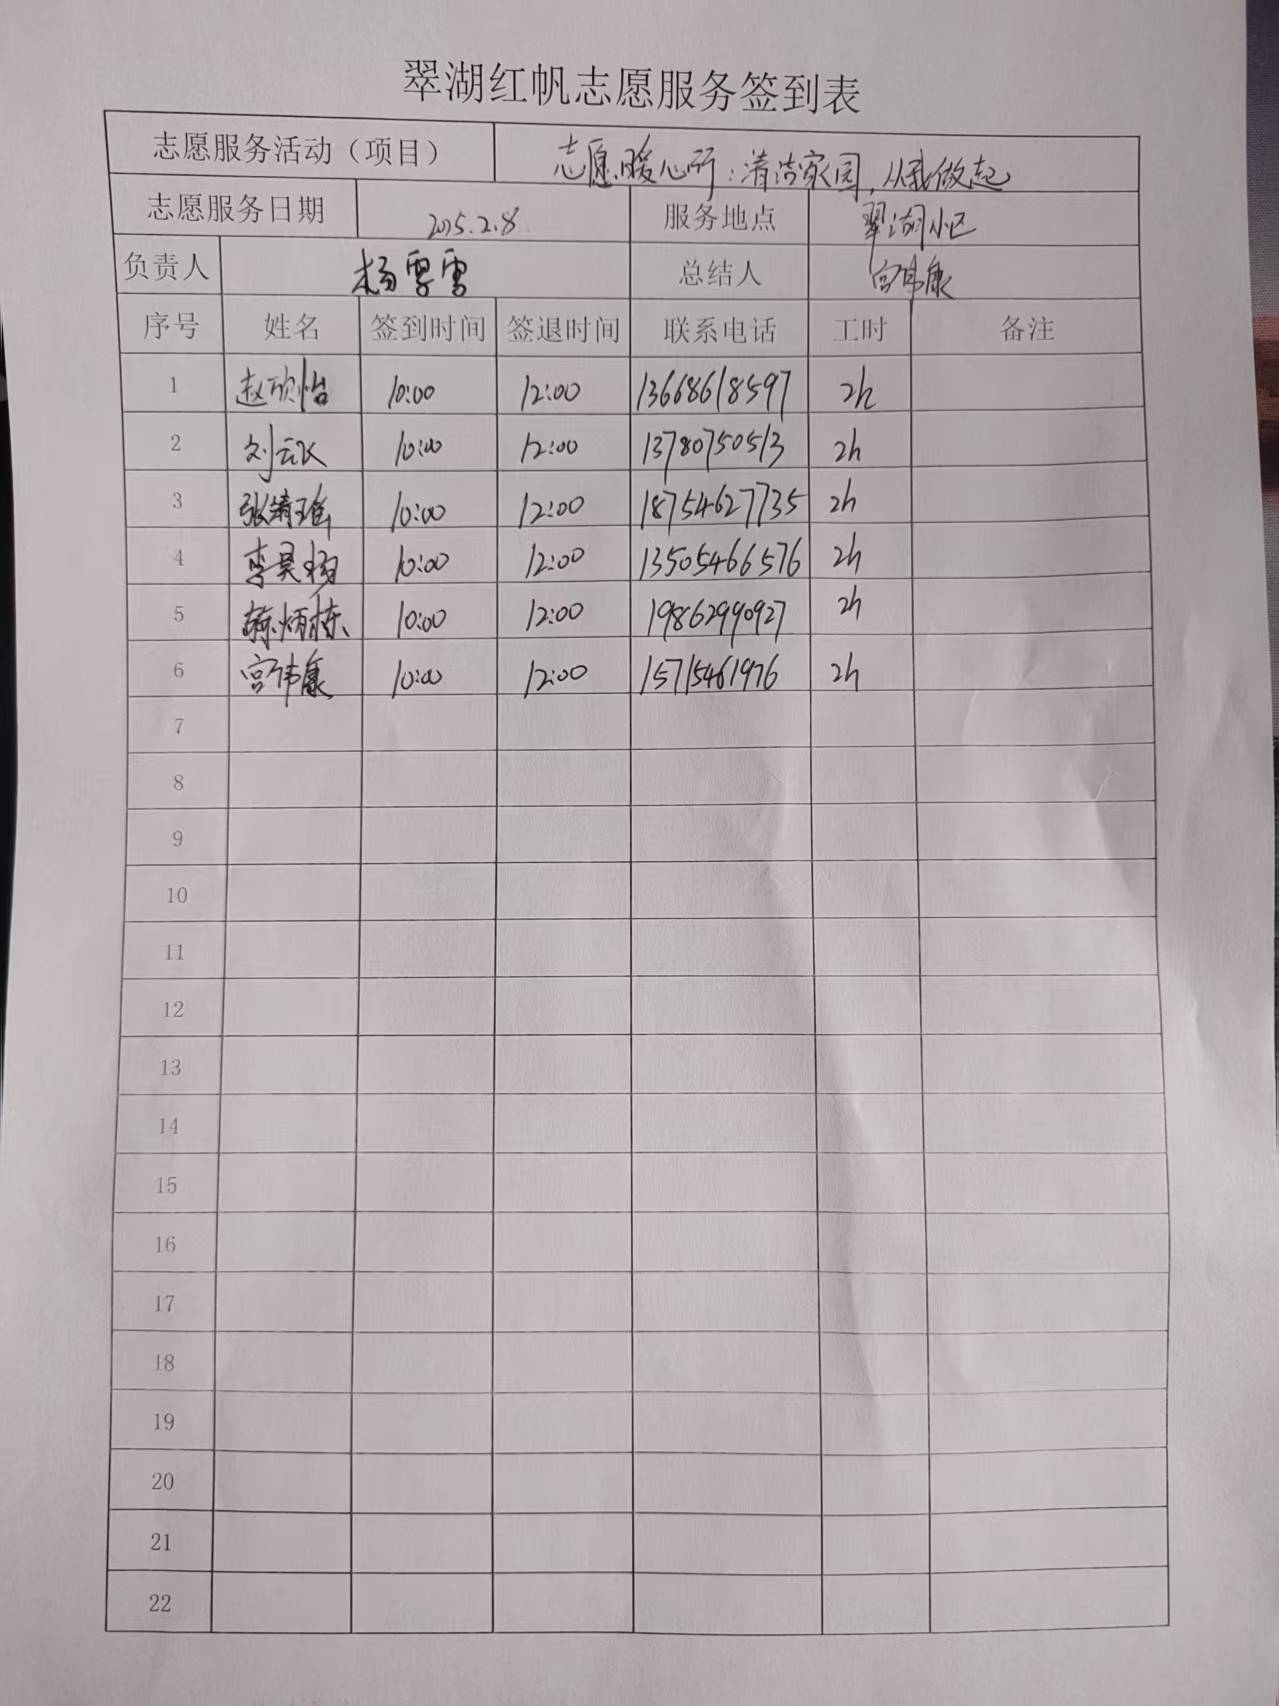 翠湖红帆志愿服务签到表
志愿服务活动（项目） 志愿暖心所：清洁家园，从我做起
志愿服务日期 2025.2.8 服务地点 翠湖小区
负责人 杨雪雷 总结人 宫伟康
序号 姓名 签到时间 签退时间 联系电话 工时 备注
1 赵欣怡 10:00 12:00 13668618597 2h
2 10:00 12:00 13780750513 2h
3 张婧瑶 10:00 12:00 18754627735 2h
4 李昊杨 10:00 12:00 13505466576 2h
5 炳栋 10:00 12:00 19862990927 2h
6 宫伟康 10:00 12:00 15715461976 2h
7
8
9
10
11
12
13
14
15
16
17
18
19
20
21
22